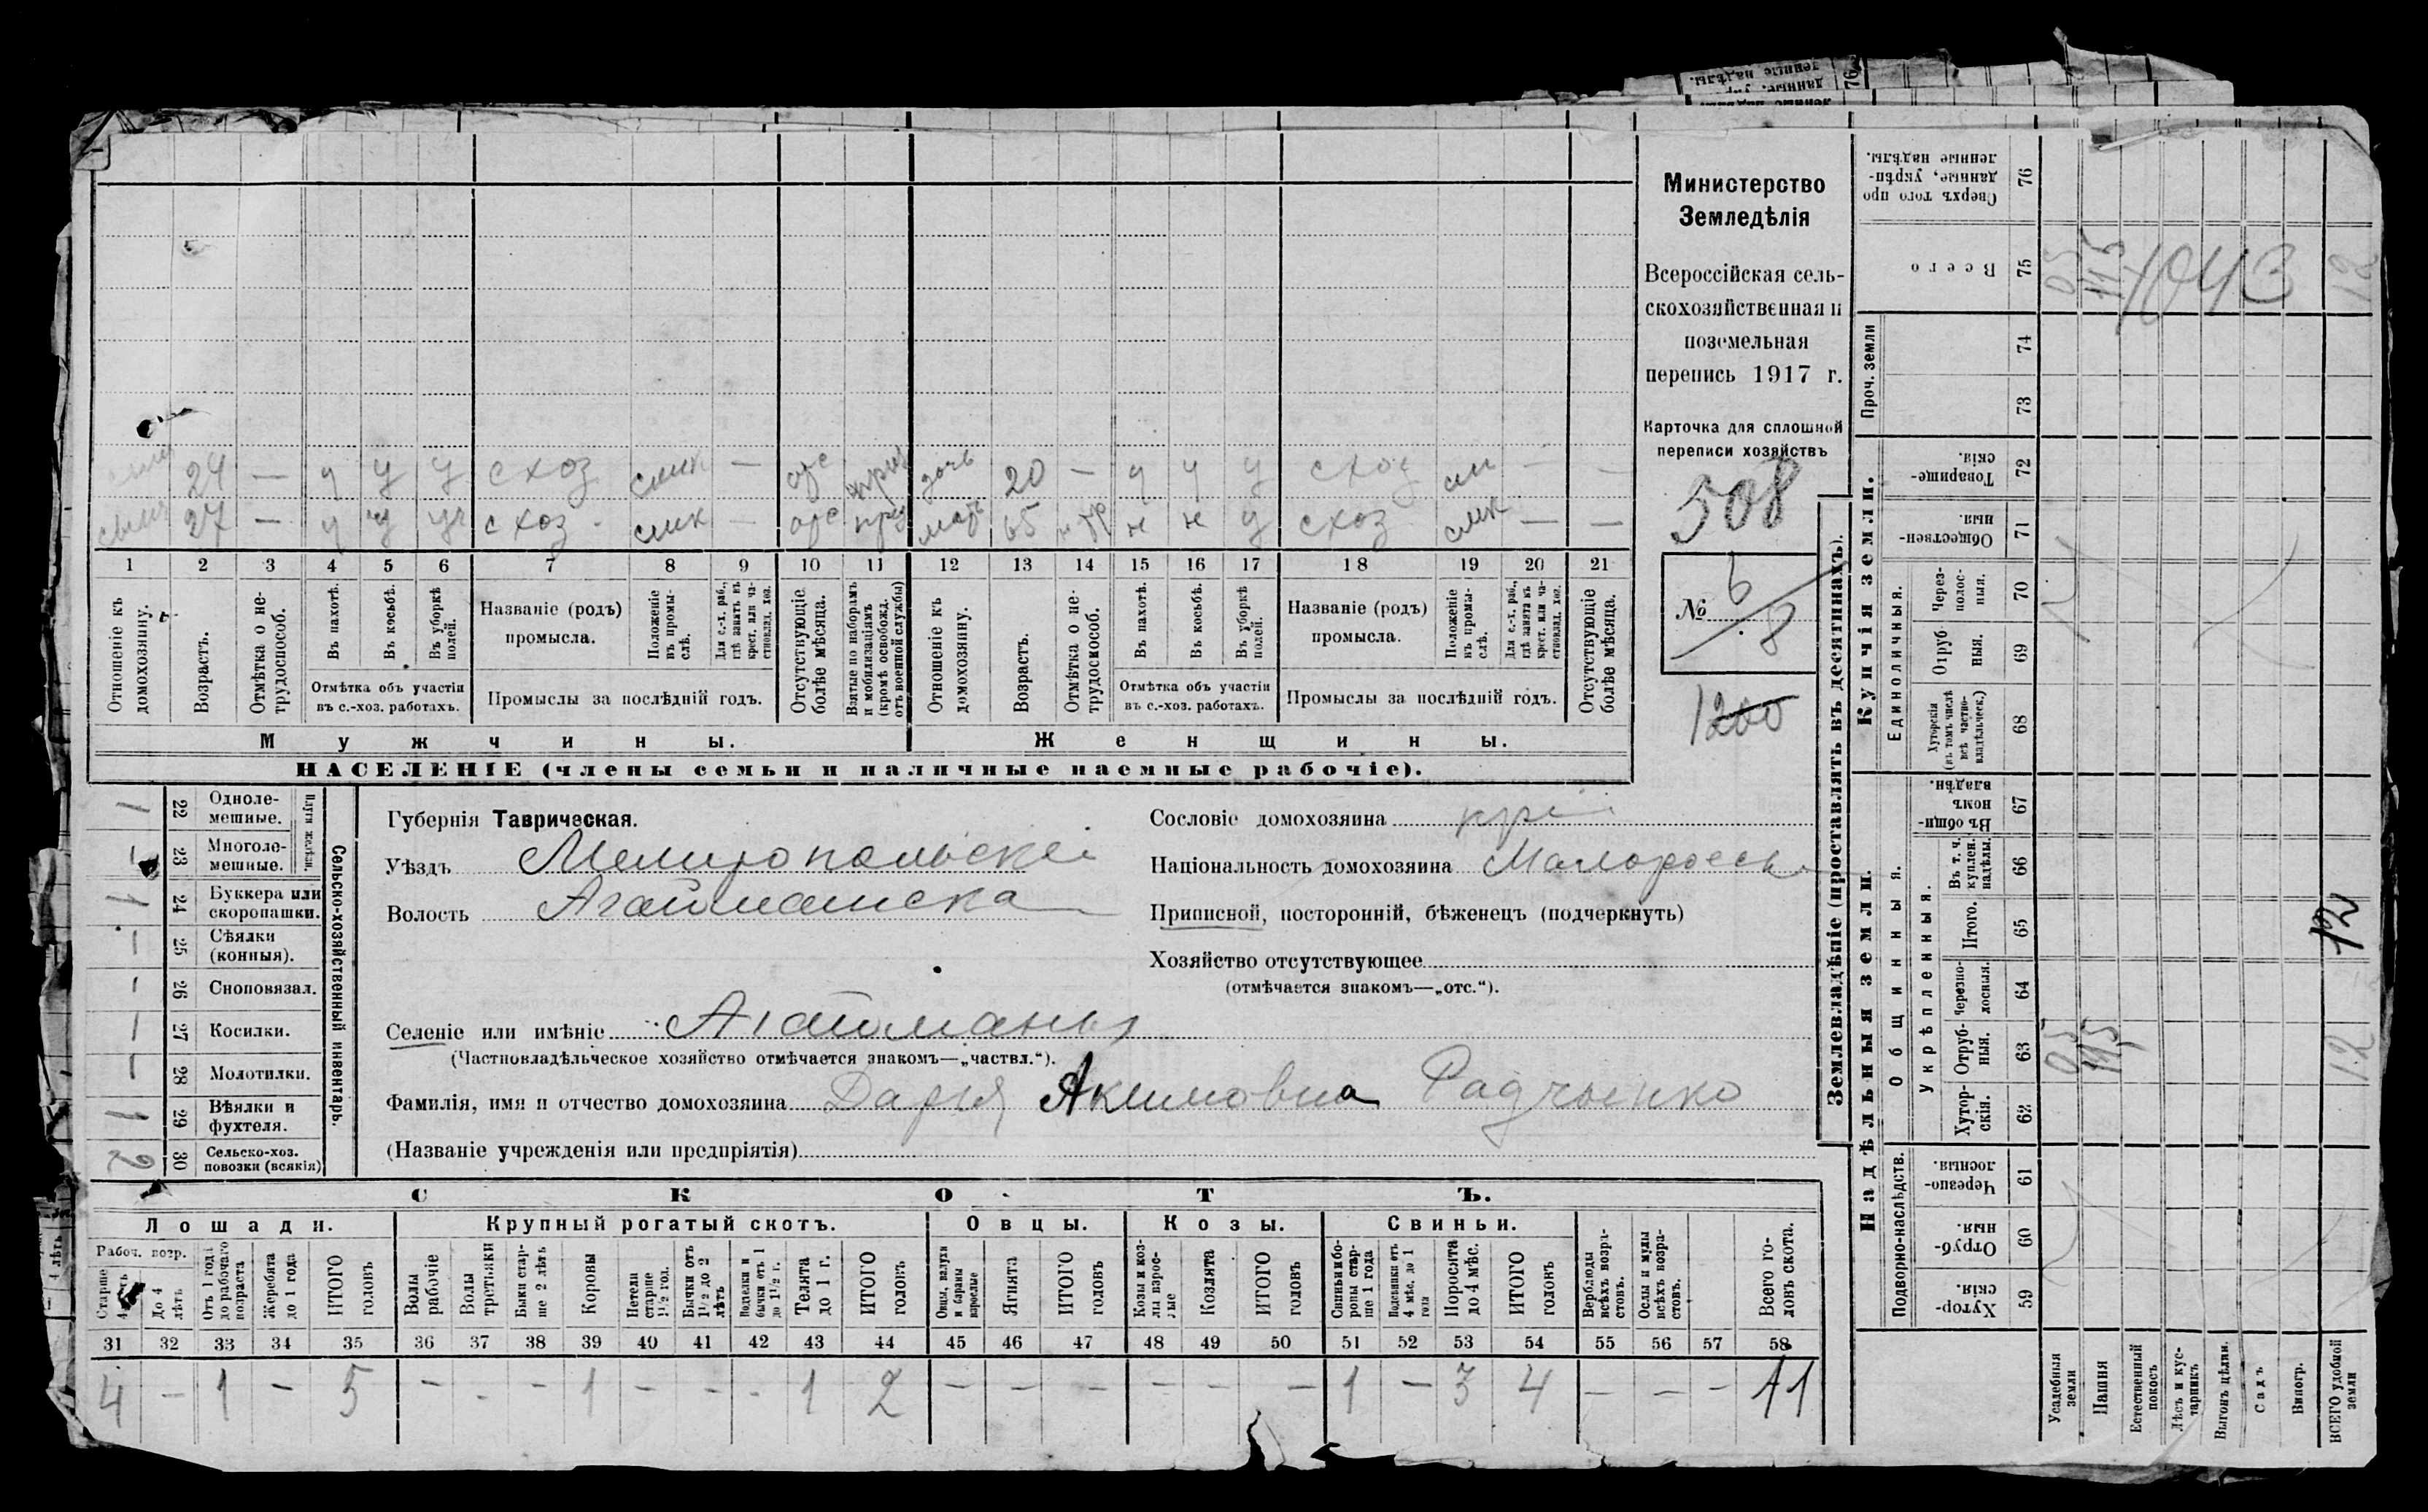 Министерство
Земледѣлія
Всероссійская сель-
скохозяйственная и
поземельная
перепись 1917 г.
Карточка для сплошной
переписи хозяйствъ
508
№ 6/8
1200
24 — у у у с хоз слик — отс дочь 20 — у у у с хоз — —
27 — у у у с хоз слик — отс мать 65 н у с хоз слик — —
1 2 3 4 5 6 7 8 9 10 11 12 13 14 15 16 17 18 19 20 21
Отношеніе къ домохозяину.
Возрастъ.
Отмѣтка о не-трудоспособ.
Въ пахотѣ.
Въ косьбѣ.
Въ уборкѣ полей.
Отмѣтка объ участіи
въ с.-хоз. работахъ.
Названіе (родъ)
промысла.
Положеніе въ промы-слѣ.
Для с.-х. раб., гдѣ занятъ въ крест. или ча-стновлад. хоз.
Промыслы за послѣдній годъ.
Отсутствующіе болѣе мѣсяца.
Взятые по наборамъ и мобилизаціямъ (кромѣ освобожд. отъ военной службы)
Отношеніе къ домохозяину.
Возрастъ.
Отмѣтка о не-трудоспособ.
Въ пахотѣ.
Въ косьбѣ.
Въ уборкѣ полей.
Отмѣтка объ участіи
въ с.-хоз. работахъ.
Названіе (родъ)
промысла.
Положеніе въ промы-слѣ.
Для с.-х. раб., гдѣ занята въ крест. или ча-стновлад. хоз.
Промыслы за послѣдній годъ.
Отсутствующіе болѣе мѣсяца.
Мужчины.
Женщины.
НАСЕЛЕНІЕ (члены семьи и наличные наемные рабочіе).
Сельско-хозяйственный инвентарь.
1 22 Одноле-мешные.
— 23 Многоле-мешные.
1 24 Буккера или скоропашки.
— 25 Сѣялки (конныя).
— 26 Сноповязал.
— 27 Косилки.
— 28 Молотилки.
1 29 Вѣялки и фухтеля.
2 30 Сельско-хоз. повозки (всякія)
Губернія Таврическая.
Уѣздъ Мелитопольскій
Волость Агайманска
Селеніе или имѣніе Агайманы
(Частновладѣльческое хозяйство отмѣчается знакомъ—„частвл.“).
Фамилія, имя и отчество домохозяина Дарья Акимовна Радченко
(Названіе учрежденія или предпріятія)
Сословіе домохозяина кре
Національность домохозяина Малоросс
Приписной, посторонній, бѣженецъ (подчеркнуть)
Хозяйство отсутствующее
(отмѣчается знакомъ—„отс.“).
СКОТЪ.
Лошади. Крупный рогатый скотъ. Овцы. Козы. Свиньи.
Рабоч. возр.
Старше 4 лѣтъ
До 4 лѣтъ
Отъ 1 года до рабочаго возраста
Жеребята до 1 года
ИТОГО головъ
Волы рабочіе
Волы третьяки
Быки стар-ше 2 лѣтъ
Коровы
Нетели старше 1½ год.
Бычки отъ 1½ до 2 лѣтъ
Воделки и бычки отъ 1 до 1½ г.
Телята до 1 г.
ИТОГО головъ
Овцы, валухи и бараны взрослые
Ягнята
ИТОГО головъ
Козы и коз-лы взрос-лые
Козлята
ИТОГО головъ
Свиньи и бо-ровы стар-ше 1 года
Подсвинки отъ 4 мѣс. до 1 года
Поросята до 4 мѣс.
ИТОГО головъ
Верблюды всѣхъ возра-стовъ.
Ослы и мулы всѣхъ возра-стовъ.
Всего го-ловъ скота.
31 32 33 34 35 36 37 38 39 40 41 42 43 44 45 46 47 48 49 50 51 52 53 54 55 56 57 58
4 — 1 — 5 — — — 1 — — — 1 2 — — — — — — 1 — 3 4 — — — 11
Землевладѣніе (проставлять въ десятинахъ).
Сверхъ того про данные, укрѣп-ленные надѣлы. 76
Всего 75 0,5 11,5 12
1043
Проч. земли
74
73
Купчія земли.
Товарище-скія. 72
Обществен-ныя. 71
Единоличныя.
Через-полос-ныя. 70
Отруб-ныя. 69
Хуторскія (въ томъ числѣ всѣ частно-владѣльческ.) 68
Надѣльныя земли.
Общинныя.
Въ общин-номъ владѣн. 67
Укрѣпленныя.
Въ т. ч. куплен. надѣлы. 66
Итого. 65 12
Черезпо-лосныя. 64
Отруб-ныя. 63 0,5 11,5 12
Хутор-скія. 62
Подворно-наслѣдств.
Черезпо-лосныя. 61
Отруб-ныя. 60
Хутор-скія. 59
Усадебныя земли
Пашня
Естественный покосъ
Лѣсъ и кус-тарникъ
Выгонъ цѣлин.
Садъ
Виногр.
ВСЕГО удобной земли